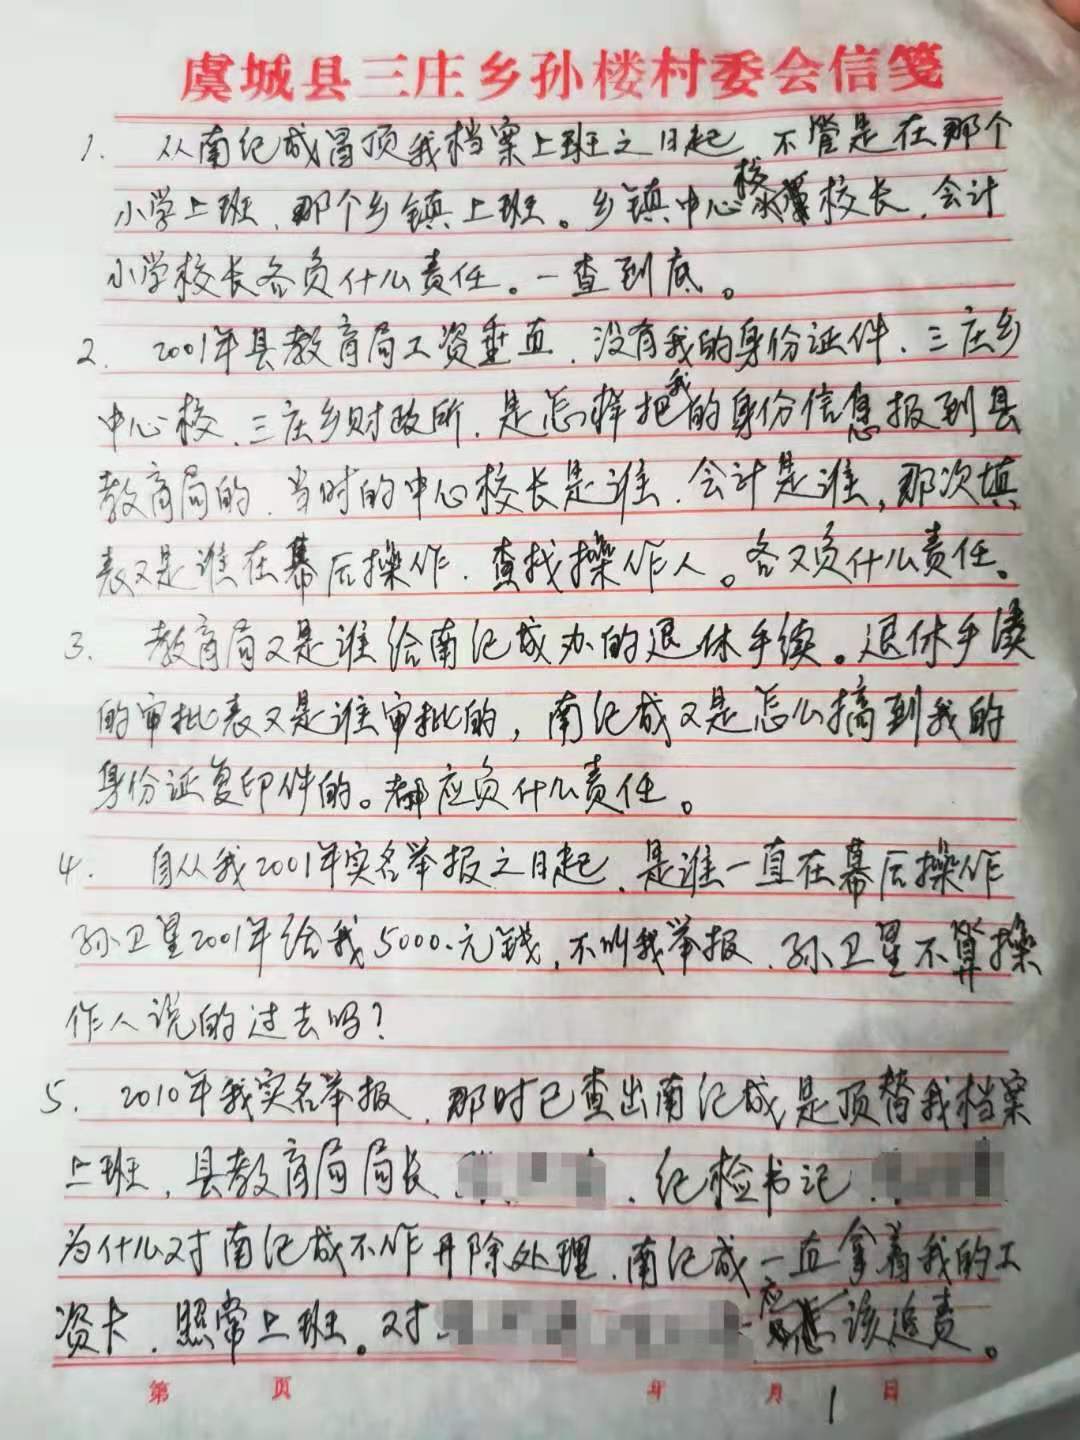 虞城县三庄乡孙楼村委会信笺
1. 从南纪成冒顶我档案上班之日起，不管是在那个
小学上班，那个乡镇上班。乡镇中心校校长，会计
小学校长各负什么责任。一查到底。
2. 2001年县教育局工资垂直，没有我的身份证件，三庄乡
中心校、三庄乡财政所，是怎样把我的身份信息报到县
教育局的，当时的中心校长是谁，会计是谁，那次填
表又是谁在幕后操作，查找操作人。各又负什么责任。
3. 教育局又是谁给南纪成办的退休手续。退休手续
的审批表又是谁审批的，南纪成又是怎么搞到我的
身份证复印件的。都应负什么责任。
4. 自从我2001年实名举报之日起，是谁一直在幕后操作
孙卫星2001年给我5000.元钱，不叫我举报，孙卫星不算操
作人说的过去吗？
5. 2010年我实名举报，那时已查出南纪成是顶替我档案
上班，县教育局局长 ，纪检书记
为什么对南纪成不作开除处理，南纪成一直拿着我的工
资卡，照常上班。对 应该追责。
第 页 年 月 日
1